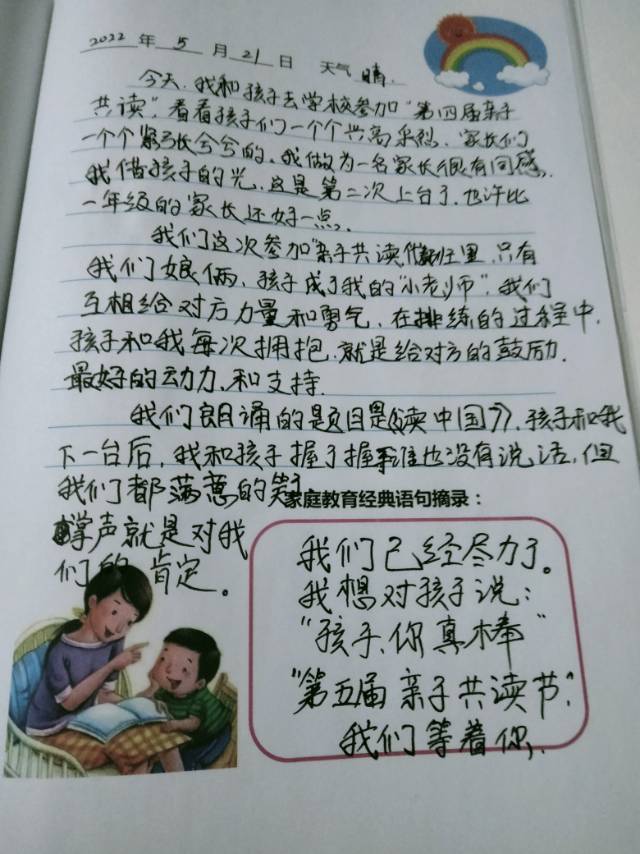 2022 年 5 月 21 日 天气 晴.
今天,我和孩子去学校参加“第四届亲子
共读”,看看孩子们一个个兴高采烈,家长们
一个个紧张兮兮的,我做为一名家长很有同感,
我借孩子的光,这是第二次上台了,也许比
一年级的家长还好一点,
我们这次参加“亲子共读”班里,只有
我们娘俩,孩子成了我的“小老师”,我们
互相给对方力量和勇气,在排练的过程中,
孩子和我每次拥抱,就是给对方的鼓励,
最好的动力,和支持.
我们朗诵的题目是《读中国》,孩子和我
下一台后,我和孩子握了握手谁也没有说话,但
我们都荡意的笑了
家庭教育经典语句摘录:
掌声就是对我
们的肯定。
我们已经尽力了。
我想对孩子说:
“孩子,你真棒”
“第五届亲子共读节”,
我们等着你,